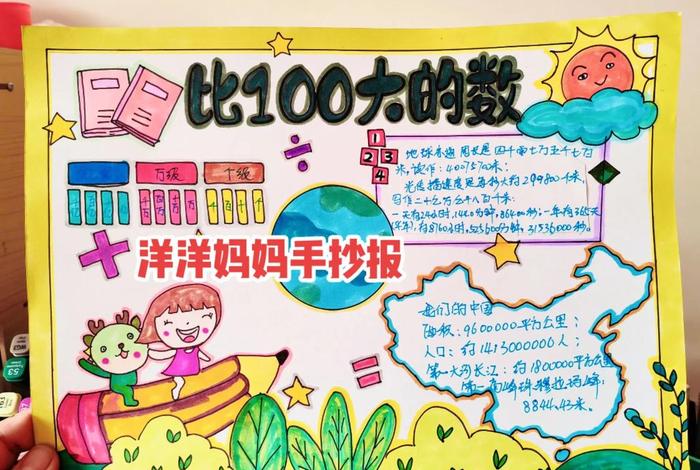 比100大的数
1
2 3
4
地球赤道周长是四千零七万五千七百
米,读作:40075700米;
光传播速度是每秒大约299800千米,
写作二十九万九千八百千米.
一天有24小时,1440分钟,86400秒;一年有365天
有8760小时,525600分钟,31536000秒.
万级 个级
千万 百万 十万 万 千 百 十 个
洋洋妈妈手抄报
我们的中国
面积:9600000平方公里;
人口:约1413000000人;
第一大河长江:约1800000平方公里
第一高峰珠穆拉玛峰:
8844.43米.